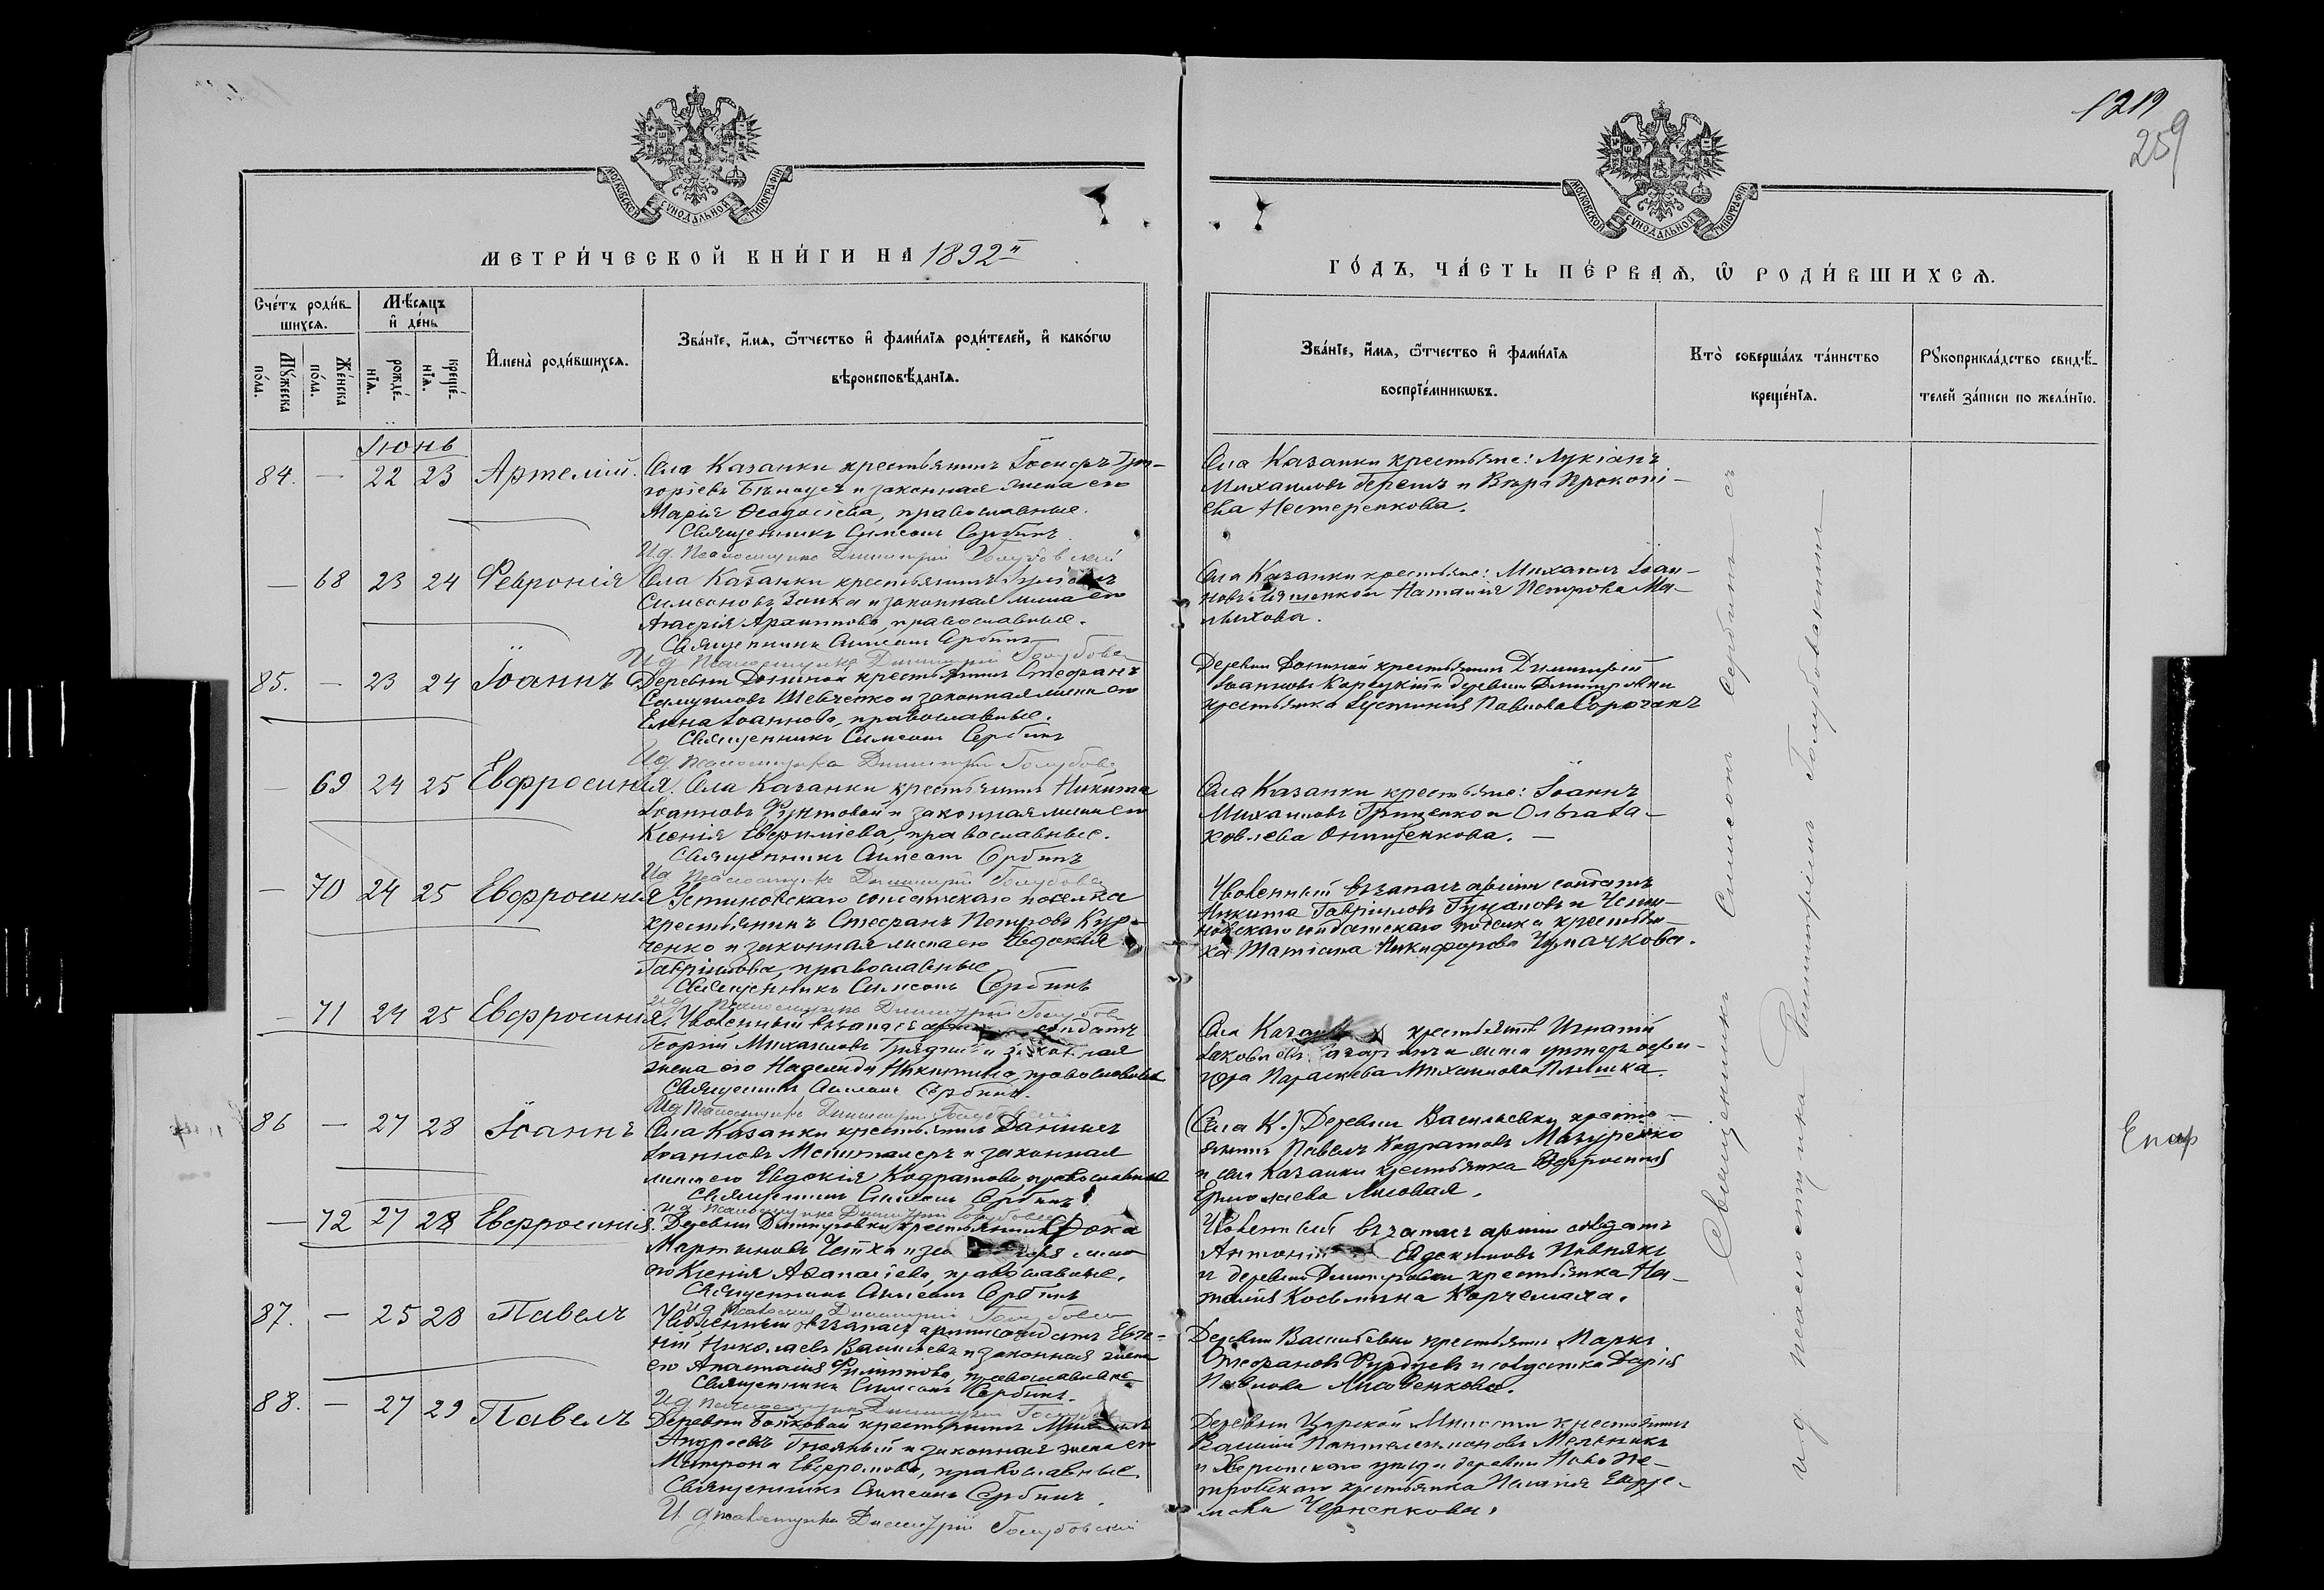 1219
259
МОСКОВСКОЙ СѴНОДАЛЬНОЙ ТИПОГРАФІИ
МОСКОВСКОЙ СѴНОДАЛЬНОЙ ТИПОГРАФІИ
МЕТРИ́ЧЕСКОЙ КНИ́ГИ НА 1892й
ГО́ДЪ, ЧА́СТЬ ПЕ́РВАѦ, Ѡ҆ РОДИ́ВШИХСѦ.
Сче́тъ роди́в-
шихсѧ.
Мѣ́сѧцъ
и҆ де́нь
Мꙋ́жеска
по́ла.
Же́нска
по́ла.
рожде́-
нїѧ.
креще́-
нїѧ.
И҆мена̀ роди́вшихсѧ.
Зва́нїе, и҆́мѧ, ѻ҆́тчество и҆ фами́лїѧ роди́телей, и҆ како́гѡ
вѣроисповѣ́данїѧ.
Зва́нїе, и҆́мѧ, ѻ҆́тчество и҆ фами́лїѧ
воспрїе́мникѡвъ.
Кто̀ соверша́лъ та́инство
креще́нїѧ.
Рꙋкоприкла́дство свидѣ́-
телей за́писи по жела́нїю.
Іюнь
84. — 22 23 Артемій. Села Казанки крестьянинъ Іосифъ Гри-
горіевъ и законная жена его
Марія Ѳеодосіева, православные.
Священникъ Симеонъ Сербинъ
И.д. Псаломщика Димитрій Голубовскій
Села Казанки крестьяне: Лукіанъ
Михаиловъ и Вѣра Прокопі-
ева Нестеренкова.
— 68 23 24 Февронія Села Казанки крестьянинъ
Симеоновъ Заика и законная жена его
Архиппова, православные.
Священникъ Симеонъ Сербинъ
И.д. Псаломщика Димитрій Голубовс
Села Казанки крестьяне: Михаилъ Іоан-
новъ и Наталія Петрова Ма-
лыхова.
85. — 23 24 Іоаннъ Деревни крестьянинъ Стефанъ
Самуиловъ Шевченко и законная жена его
Елена Іоаннова, православные.
Священникъ Симеонъ Сербинъ
И.д. Псаломщика Димитрій Голубовс
Деревни крестьянинъ Димитрій
Іоанновъ и деревни Дмитровки
крестьянка Іустинія Павлова Сорочанъ
— 69 24 25 Евфросинія. Села Казанки крестьянинъ Никита
Іоанновъ и законная жена его
Ксенія Евфиміева, православные.
Священникъ Симеонъ Сербинъ
И.д. Псаломщика Димитрій Голубовс
Села Казанки крестьяне: Іоаннъ
Михаиловъ Гриценко и Ольга Іа-
ковлева Онищенкова. —
— 70 24 25 Евфросинія Устиновскаго солдатскаго поселка
крестьянинъ Стефанъ Петровъ Кур-
ченко и законная жена его Евдокія
Гавріилова, православные
Священникъ Симеонъ Сербинъ
И.д. Псаломщика Димитрій Голубовс
Уволенный въ запасъ арміи солдатъ
Никита Гавріиловъ и Усти-
новскаго солдатскаго поселка крестьян-
ка Татіана Никифорова Чумачкова.
— 71 24 25 Евфросинія. Уволенный въ запасъ арміи солдатъ
Георгій Михаиловъ и законная
жена его Надежда Никитина, православные
Священникъ Симеонъ Сербинъ.
И.д. Псаломщика Димитрій Голубовс
Села Казанки крестьянинъ Игнатій
Іаковлевъ и жена унтеръ офи-
цера Параскева Михаилова
86 — 27 28 Іоаннъ Села Казанки крестьянинъ Даніилъ
Іоанновъ и законная
жена его Евдокія Кодратова, православные
Священникъ Симеонъ Сербинъ
И.д. Псаломщика Димитрій Голубовс
(Села К.) Деревни Васильевки кресть-
янинъ Павелъ Кодратовъ Мазуренко
и села Казанки крестьянка Евфросинія
Ермолаева Лисовая.
— 72 27 28 Евфросинія. Деревни Дмитровки крестьянинъ Фока
Мартыновъ и законная жена
его Ксенія Аѳанасіева, православные.
Священникъ Симеонъ Сербинъ
И.д. Псаломщ Димитрій Голубовс
Уволенный въ запасъ арміи солдатъ
Антоній Евдокимовъ Пивнякъ
и деревни Дмитровки крестьянка На-
талія Косьмина Корчемаха.
87. — 25 28 Павелъ Уволенный въ запасъ арміи солдатъ Евге-
ній Николаевъ Васильевъ и законная жена
его Анастасія Филиппова, православные
Священникъ Симеонъ Сербинъ.
И.д. Псаломщика Димитрій Голубовс
Деревни Васильевки крестьянинъ Марко
Стефановъ и солдатка Дарія
Павлова Лисовенкова.
88. — 27 29 Павелъ Деревни Бойковой крестьянинъ
Андреевъ и законная жена его
Матрона Евфремова, православные.
Священникъ Симеонъ Сербинъ.
И.д. псаломщика Димитрій Голубовскій
Деревни Царской Милости крестьянинъ
Василій Пантелеимоновъ Мельникъ
и Херсонскаго уезда деревни Ново Пе-
тровской крестьянка Пелагія Евфре-
мова Черненкова.
Священникъ Симеонъ Сербинъ съ
и.д. псаломщика Димитріемъ Голубовскимъ
Епар